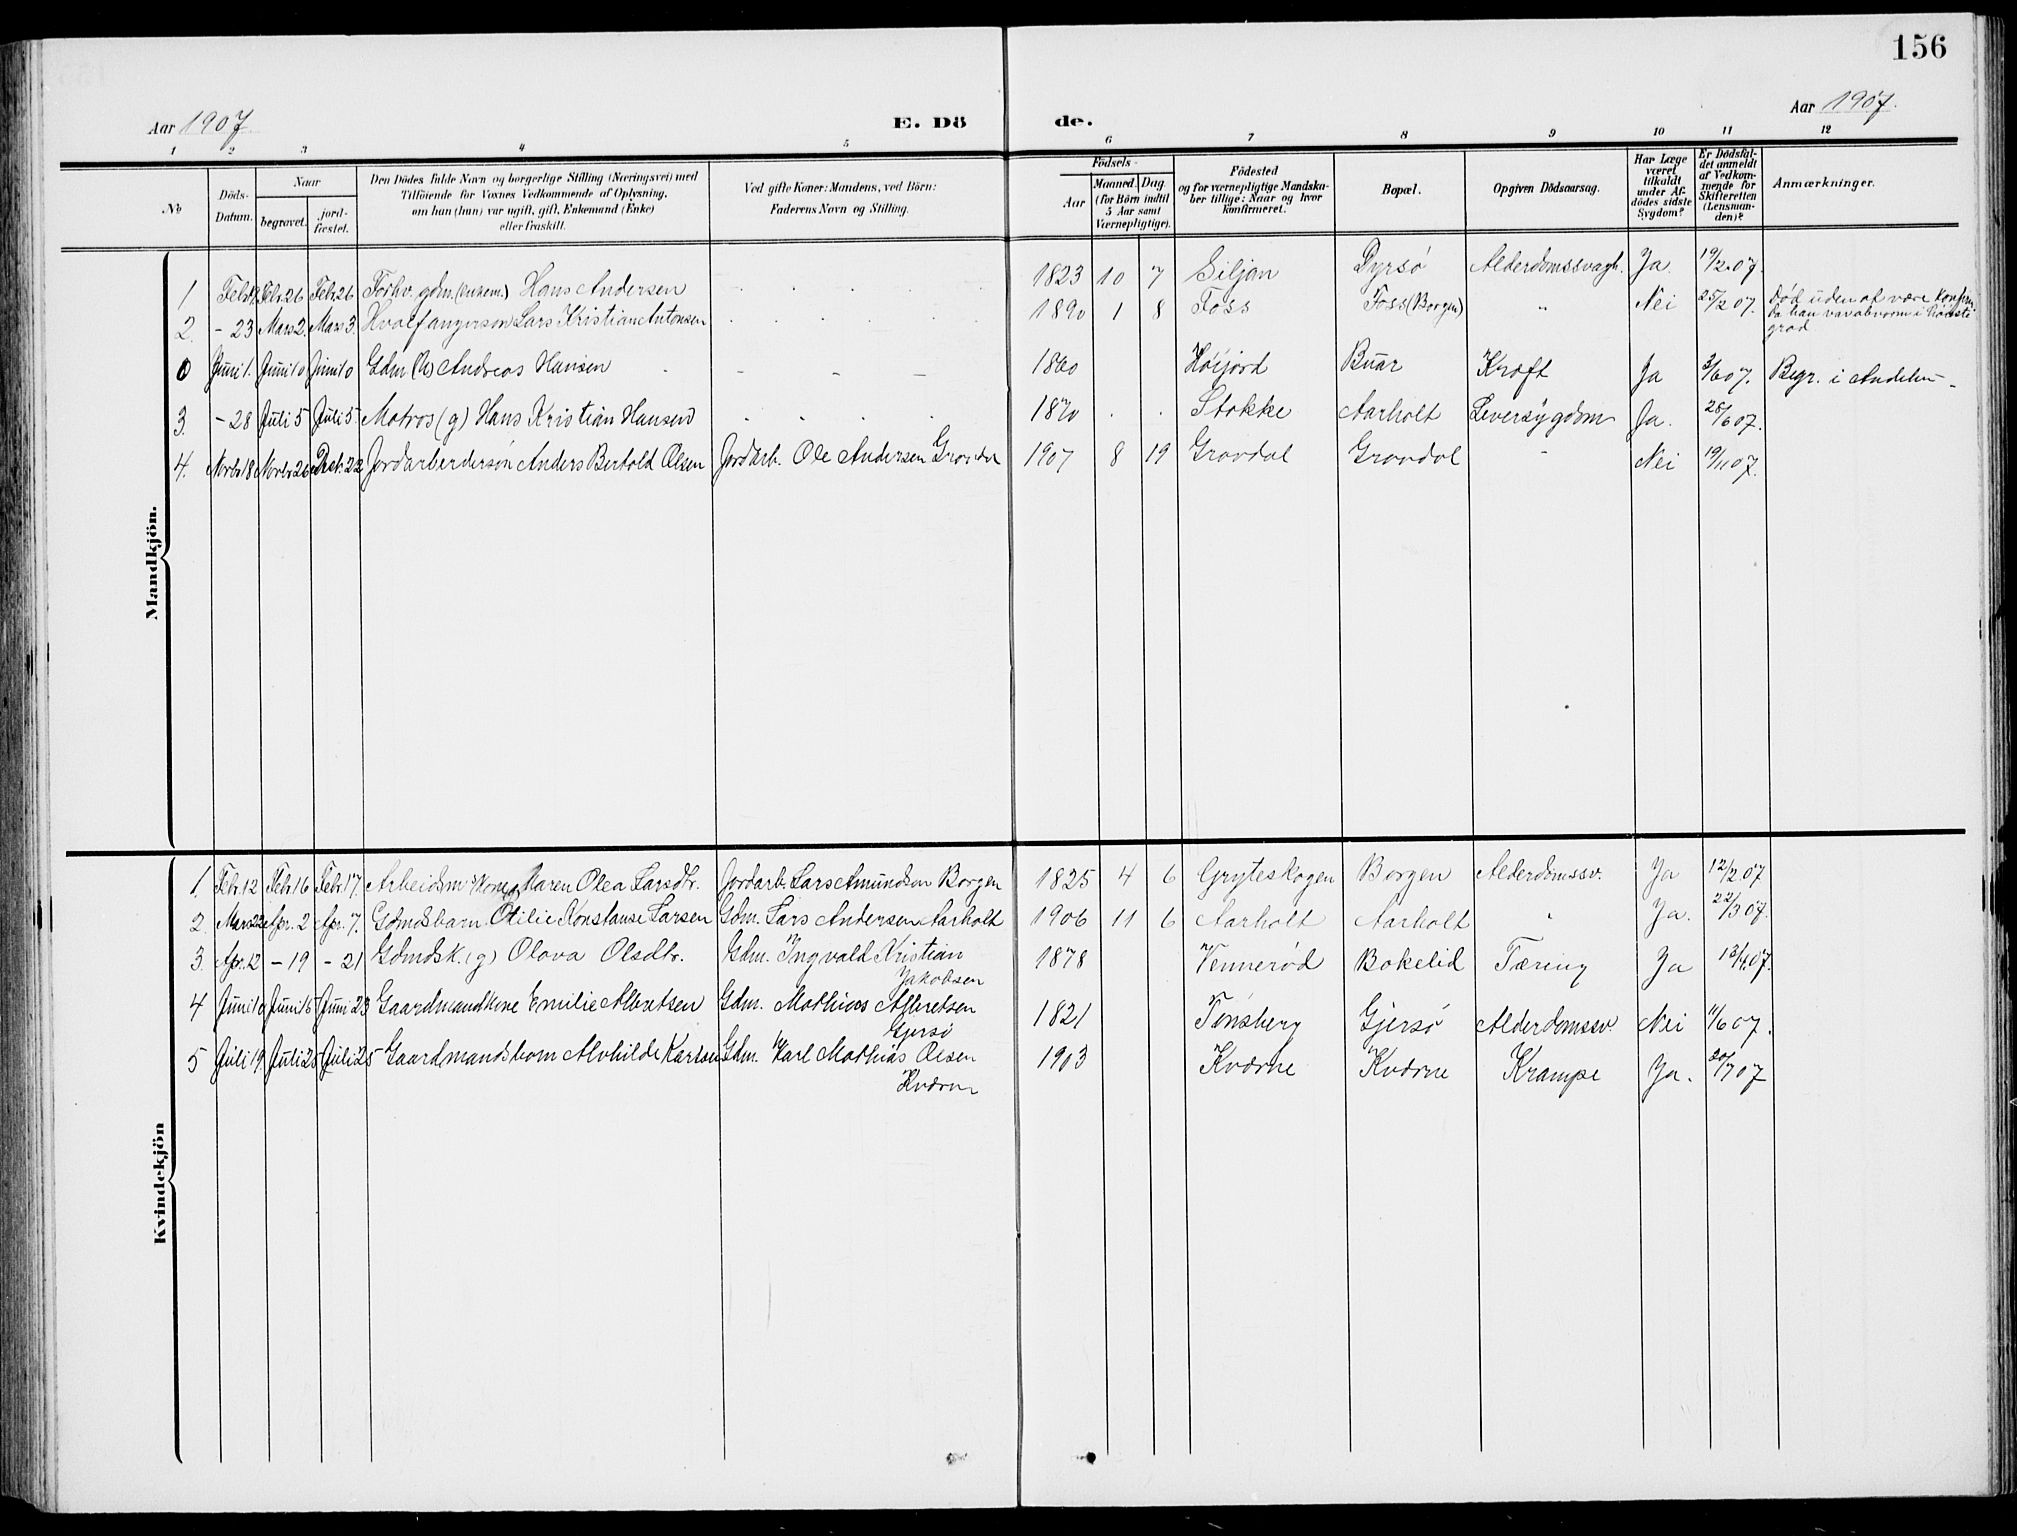 156
Aar 1907
E. Dö
de.
Aar 1907.
1 2 3 4 5 6 7 8 9 10 11 12
№
Döds-
Datum.
Naar
begravet.
jord-
fæstet.
Den Dödes fulde Navn og borgerlige Stilling (Næringsvei) med
Tilföiende for Voxnes Vedkommende af Oplysning,
om han (hun) var ugift, gift, Enkemand (Enke)
eller fraskilt.
Ved gifte Koner: Mandens, ved Börn:
Faderens Navn og Stilling.
Födsels-
Aar
Maaned.
Dag.
(for Börn indtil
5 Aar samt
Værnepligtige).
Födested
og for værnepligtige Mandska-
ber tillige: Naar og hvor
konfirmeret.
Bopæl.
Opgiven Dödsaarsag.
Har Læge
været
tilkaldt
under Af-
dödes sidste
Sygdom?
Er Dödsfal-
det anmeldt
af Vedkom-
mende for
Skifteretten
(Lensman-
den)?
Anmærkninger.
Mandkjön.
1 Feb 19 Febr. 26 Febr. 26 Forhv. gdm. (enkem.) Hans Andersen 1823 10 7 Siljan Dyrsø Alderdomssvagh. Ja. 19/2 07.
2. - 23 Mars 2. Mars 3. Hvalfangersøn Lars Kristian Antonsen 1890 1 8 Foss Foss (Borgen) " Nei 25/2 07. Død uden at være konfirm.
Da han var i høieste
grad
0 Juni 1. Juni 10 Juni 10 Gdm Andreas Hansen 1860 Høijord Buar Kræft Ja 3/6 07. Begr. i Andebu -
3. - 28 Juli 5 Juli 5. Matros (g) Hans Kristian Hansen 1870 Stokke Aarholt Leversygdom Ja. 28/6 07.
4. Novbr 18 Novbr 26 Desb. 22 Jordarbeidersøn Anders Bertold Olsen Jordarb. Ole Andersen Gravdal 1907 8 19 Gravdal Gravdal - Nei 19/11 07.
Kvindekjön
1. Febr. 12 Febr. 16 Febr. 17. Arbeidsm. kone Maren Olea Larsdtr. Jordarb. Lars Amundsen Borgen 1825 4 6 Gryteskogen Borgen Alderdomssv. Ja 12/2 07
2. Mars 23 Apr. 2 Apr. 7. Gdmdsbarn Otilie Konstanse Larsen Gdm. Lars Andersen Aarholt 1906 11 6 Aarholt Aarholt " Ja. 22/3 07.
3. Apr. 12 - 19 - 21 Gdmdsk. (g) Olava Olsdtr. Gdm. Ingvald Kristian
Jakobsen 1878 Vennerød Bakelid Tæring Ja 13/4 07.
4 Juni 10 Juni 15 Juni 23 Gaardmandskone Emilie Albretsen Gdm. Mathias Albretsen
Gjersø 1821 Tønsberg Gjersø Alderdomssv. Nei 11/6 07.
5 Juli 19. Juli 25 Juli 25 Gaardmandsbarn Alvhilde Karlsen Gdm. Karl Mathias Olsen
Kværne 1903 Kværne Kværne Krampe Ja. 20/7 07